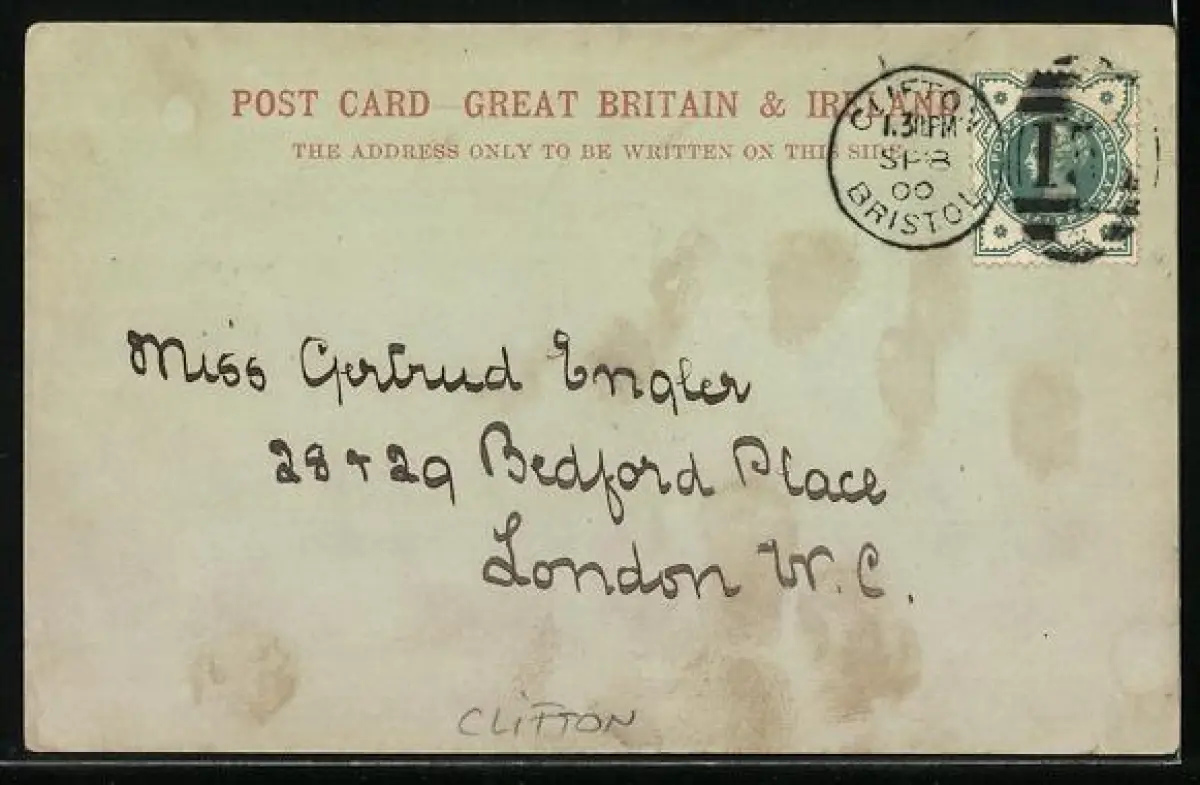 POST CARD GREAT BRITAIN & IRELAND
THE ADDRESS ONLY TO BE WRITTEN ON THIS SIDE
CLIFTON
1.30PM
SP 8
00
BRISTOL
Miss Gertrud Engler
28 + 29 Bedford Place
London W.C.
CLIFTON